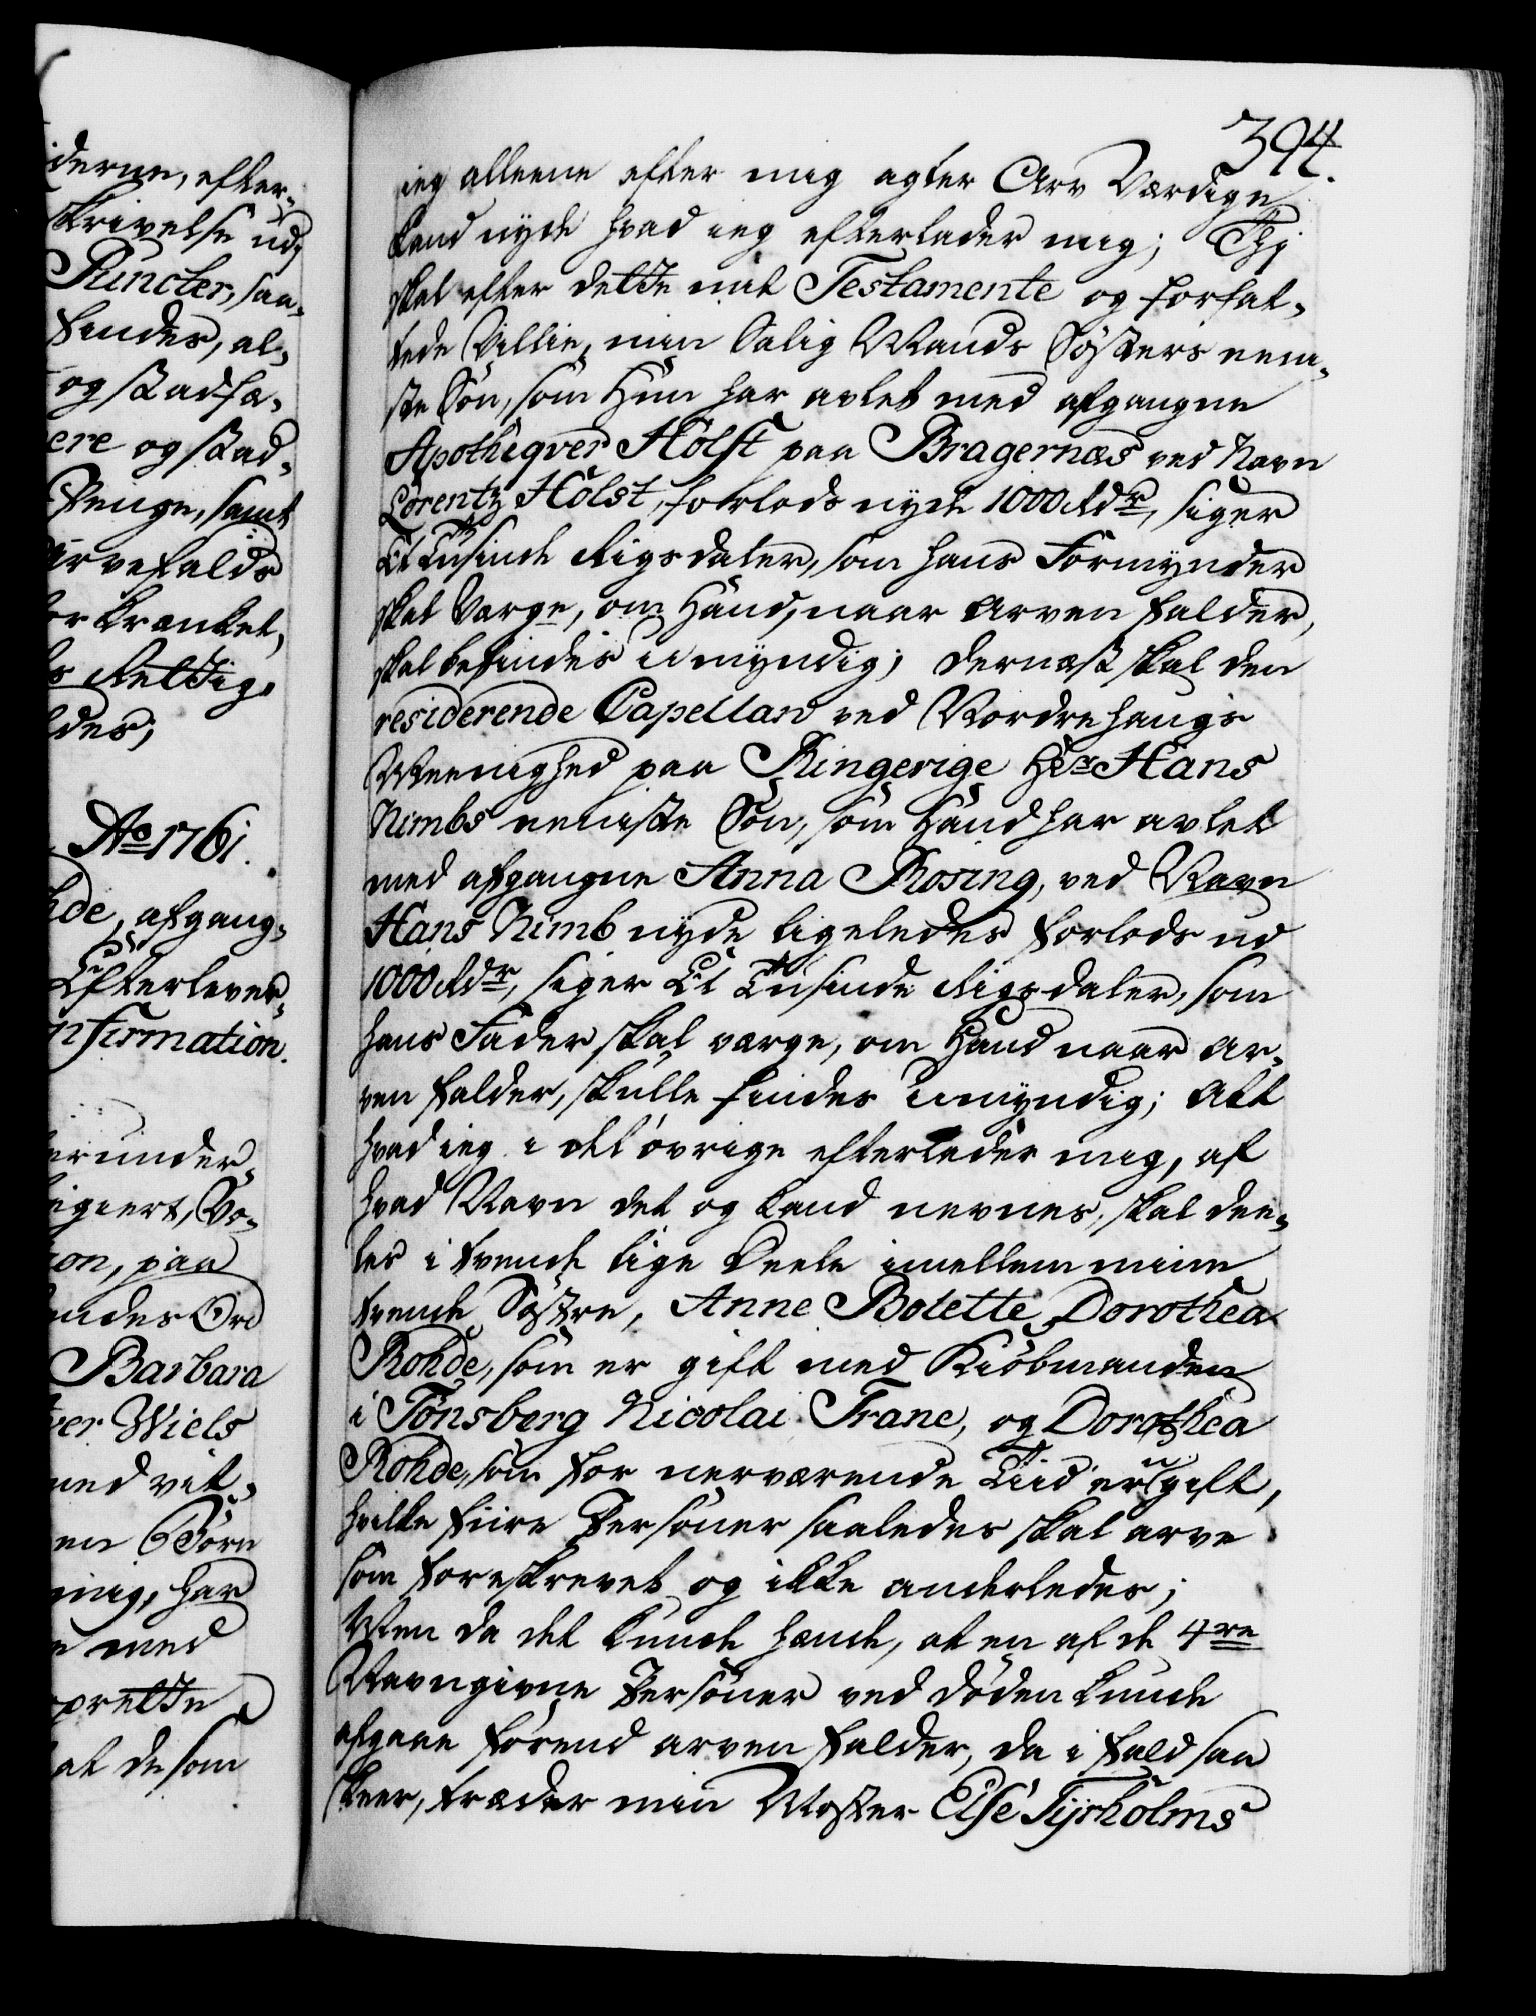 iderne, efter-
skrivelse udj
Puncter, saa-
findes, al-
og stadfæ-
ere og stad-
Penge, samt
Arvefalds
for krænket,
s Rettig-
ldes;
Ao 1761.
hde, afgang-
Efterlever-
nfirmation.
erunder-
igiert, Vo-
ion, paa
endes Ord
Barbara
ver Wiels
med vit-
en Børn
mig, har
e med
oprette
at de som
394.
jeg alleene efter mig agter Arv Værdige
kand nyde hvad jeg efterlader mig; Thj
skal efter dette mit Testamente og forfat-
tede Villie, min Salig Mands Søsters eeni-
ste Søn, som Hun har avlet med afgangne
Apotheqver Holst paa Bragernæs ved Navn
Lorentz Holst, forlods nyde 1000 Rdr, siger
Et Tusinde Rigsdaler, som hans Formynder
skal Værge, om Hand, naar Arven falder,
skal befindes umyndig; dernæst skal den
residerende Capellan ved Nordrehougs
Meenighed paa Ringerige Hr Hans
Nimbs eeniste Søn, som Hand har avlet
med afgangne Anna Rosing, ved Navn
Hans Nimb nyde ligeledes forlods ud
1000 Rdr, siger Et Tusinde Rigsdaler, som
hans Fader skal værge, om Hand naar Ar-
ven falder, skulle findes umyndig; Alt
hvad jeg i det øvrige efterlader mig, af
hvad Navn det og kand nevnes, skal dee-
les i tvende lige Deele imellem mine
tvende Søstre, Anne Bolette Dorothea
Rohde, som er gift med Kiøbmanden
i Tønsberg Nicolai Trane, og Dorothea
Rohde, som for nerværende Tiid er ugift,
hvilke fiire Personer saaledes skal arve
som foreskrevet og ikke anderledes;
Men da det kunde hænde, at en af de 4re
Navngivne Personer ved døden kunde
afgaae førend arven falder, da i fald saa
skeer, træder min Moster Else Tyrholms